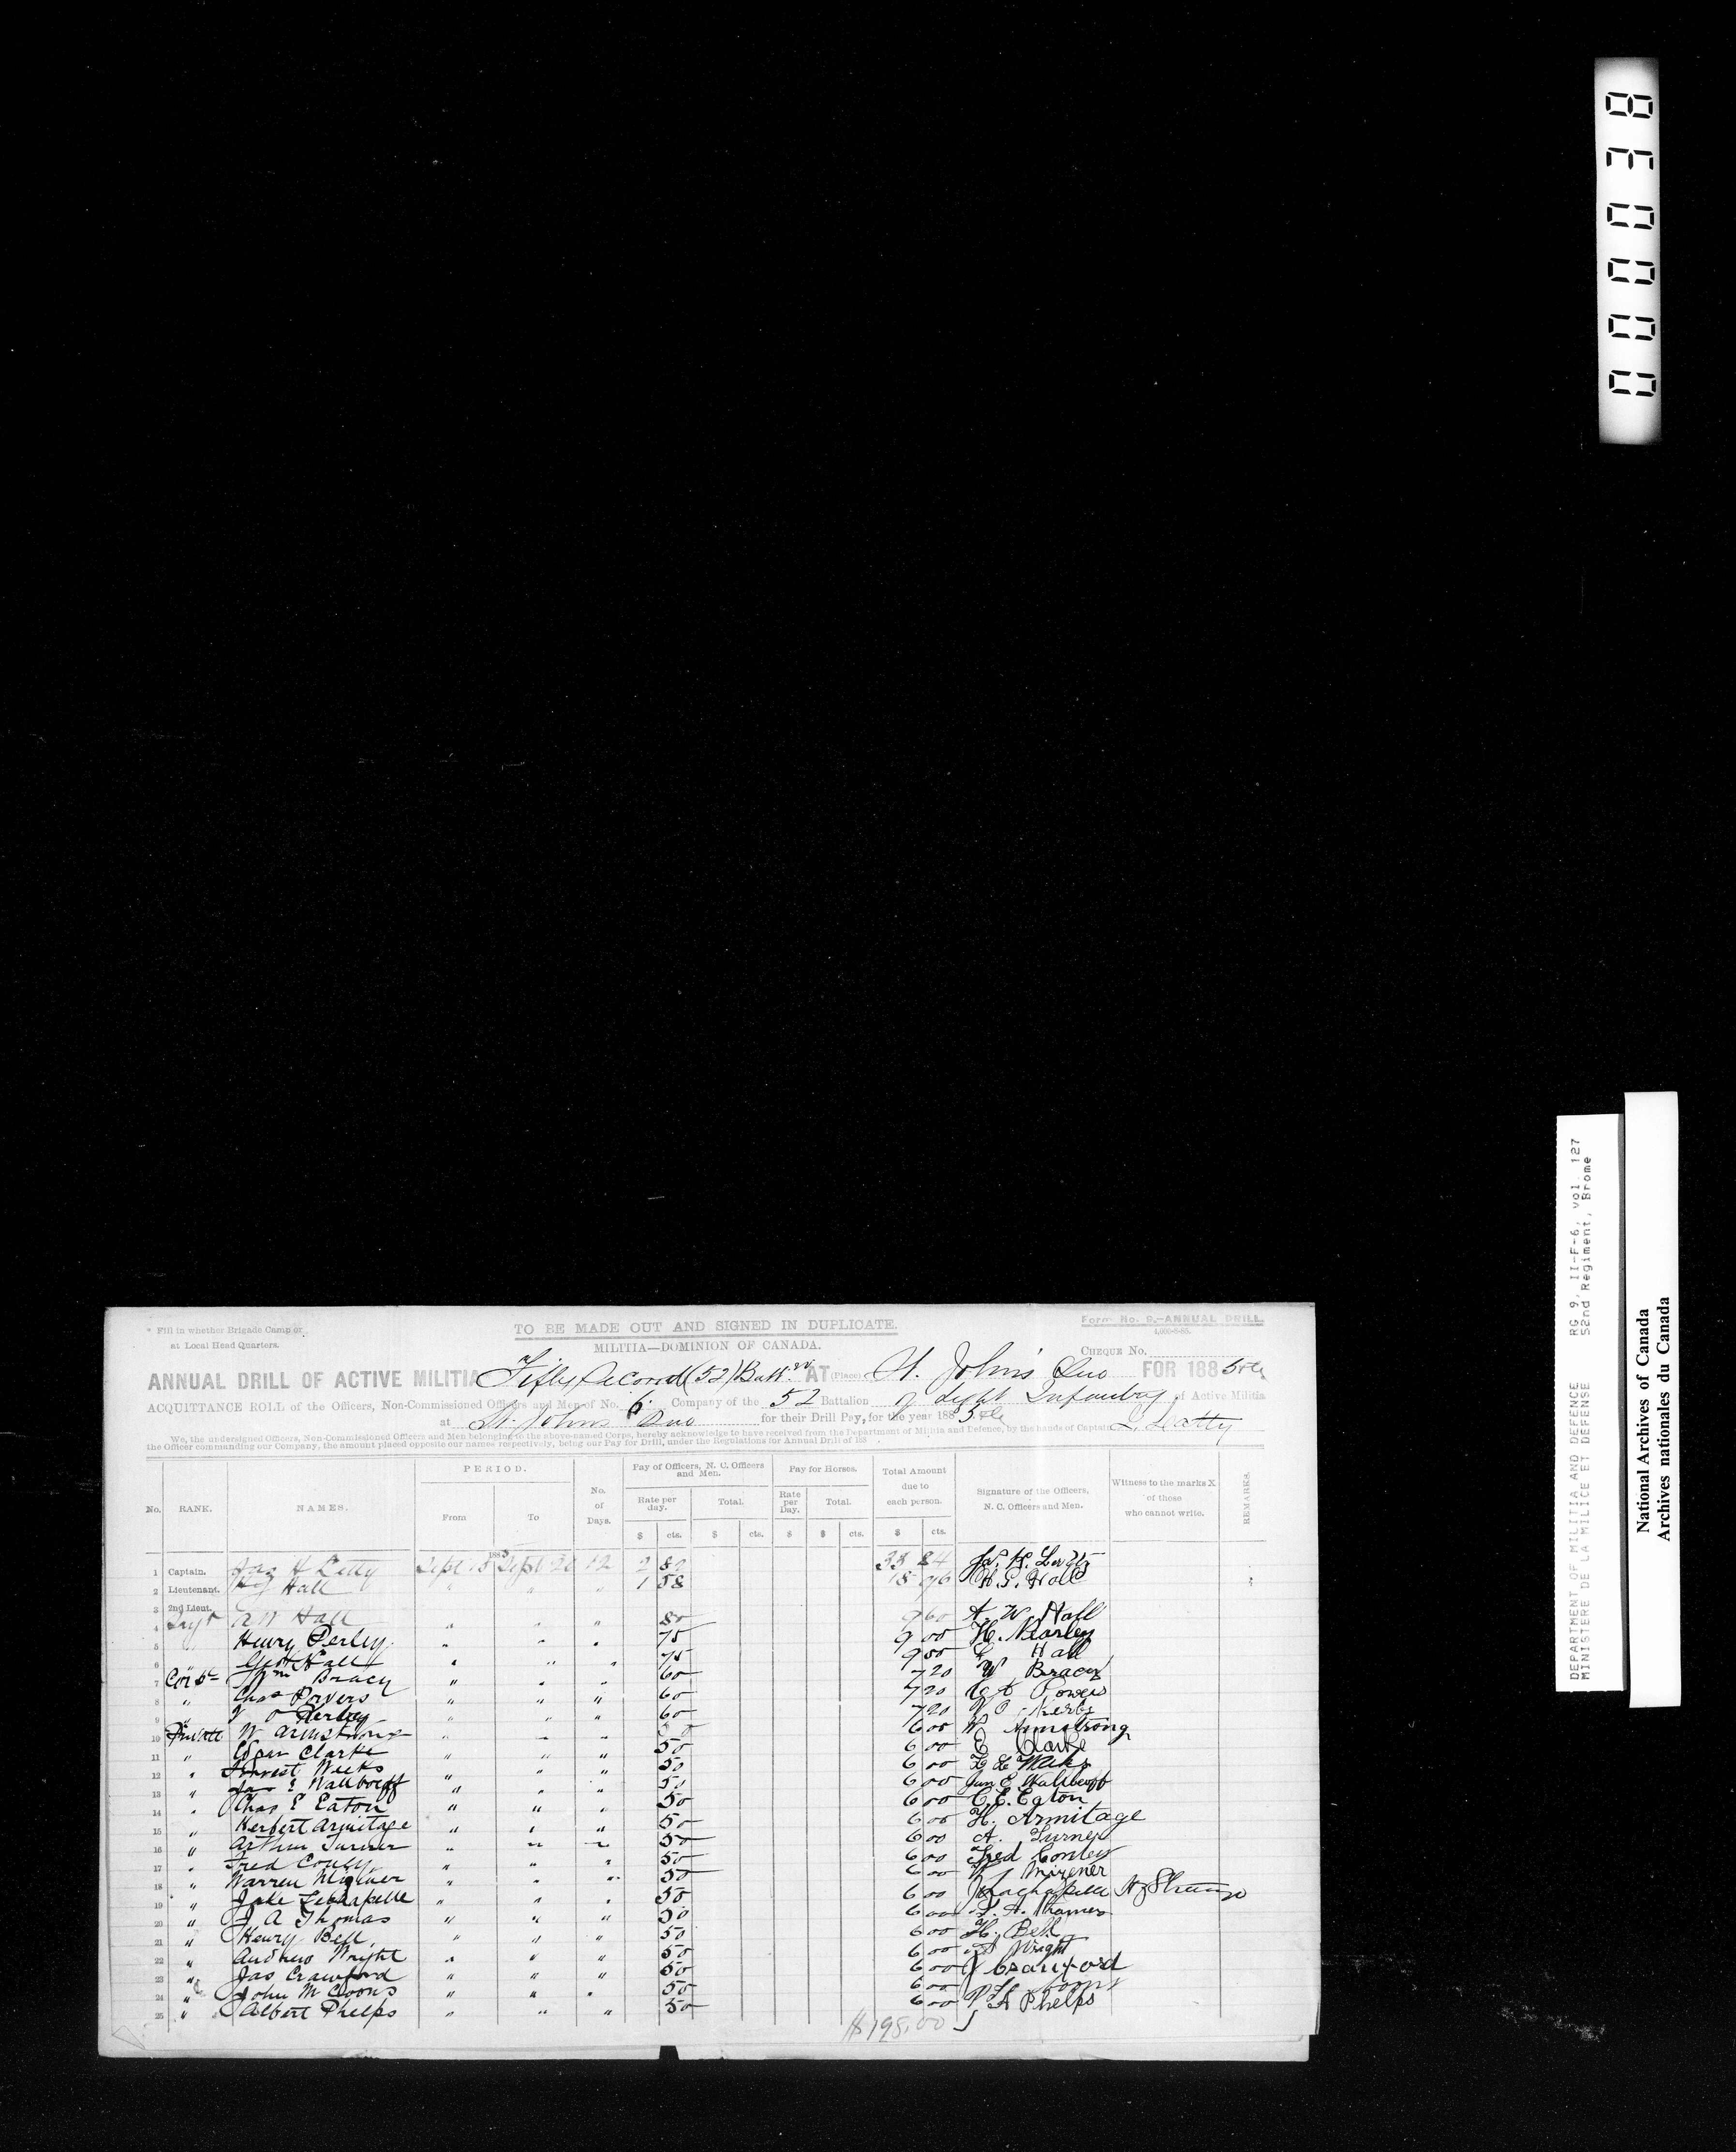 00038
* Fill in whether Brigade Camp or
at Local Head Quarters.
TO BE MADE OUT AND SIGNED IN DUPLICATE.
Form No. 9.—ANNUAL DRILL.
4,000-8-85.
MILITIA—DOMINION OF CANADA.
CHEQUE No.
ANNUAL DRILL OF ACTIVE MILITIA Fifty Second (52) Batt. AT (Place) St. Johns Que FOR 1885
ACQUITTANCE ROLL of the Officers, Non-Commissioned Officers and Men of No. 6 Company of the 52 Battalion of Light Infantry of Active Militia
at St. Johns Que for their Drill Pay, for the year 1885
We, the undersigned Officers, Non-Commissioned Officers and Men belonging to the above-named Corps, hereby acknowledge to have received from the Department of Militia and Defence, by the hands of Captain
the Officer commanding our Company, the amount placed opposite our names respectively, being our Pay for Drill, under the Regulations for Annual Drill of 188
No. RANK. NAMES. PERIOD. From To No. of Days. Pay of Officers, N. C. Officers and Men. Rate per day. Total. Pay for Horses. Rate per Day. Total. Total Amount due to each person. Signature of the Officers, N. C. Officers and Men. Witness to the marks X of those who cannot write. REMARKS.
$ cts. $ cts. $ $ cts. $ cts.
1 Captain. Sept 15 Sept 26 12 2 82 33 84
2 Lieutenant. Hall " " " 1 58 18 96 H. S. Hall
3 2nd Lieut.
4 Sergt A W Hall " " " 80 9 60 A. W. Hall
5 Henry Perley " " " 75 9 00
6 " Geo Hall " " " 75 9 00 G Hall
7 Corpl Wm Bracy " " " 60 7 20 W Bracy
8 " Chas Powers " " " 60 7 20 C A Powers
9 " " " " 60 7 20
10 Private W Armstrong " " " 50 6 00 W Armstrong
11 " Clarke " " " 50 6 00 E Clarke
12 " Forrest Weeks " " " 50 6 00
13 " Jas E " " " 50 6 00
14 " Chas E Eaton " " " 50 6 00 C. E. Eaton
15 " Herbert Armitage " " " 50 6 00 H. Armitage
16 " Arthur Turner " " " 50 6 00 A. Turner
17 " Fred Conley " " " 50 6 00 Fred Conley
18 " Warren Mizener " " " 50 6 00 W Mizener
19 " " " " 50 6 00 J Lachapelle
20 " J A Thomas " " " 50 6 00 J. A. Thomas
21 " Henry Bell " " " 50 6 00 H. Bell
22 " Andrew Wright " " " 50 6 00 A Wright
23 " Jas Crawford " " " 50 6 00 J Crawford
24 " John M Coons " " " 50 6 00
25 " Albert Phelps " " " 50 6 00 A Phelps
$198.00
DEPARTMENT OF MILITIA AND DEFENCE RG 9, II-F-6, vol. 127
MINISTERE DE LA MILICE ET DEFENSE 52nd Regiment, Brome
National Archives of Canada
Archives nationales du Canada